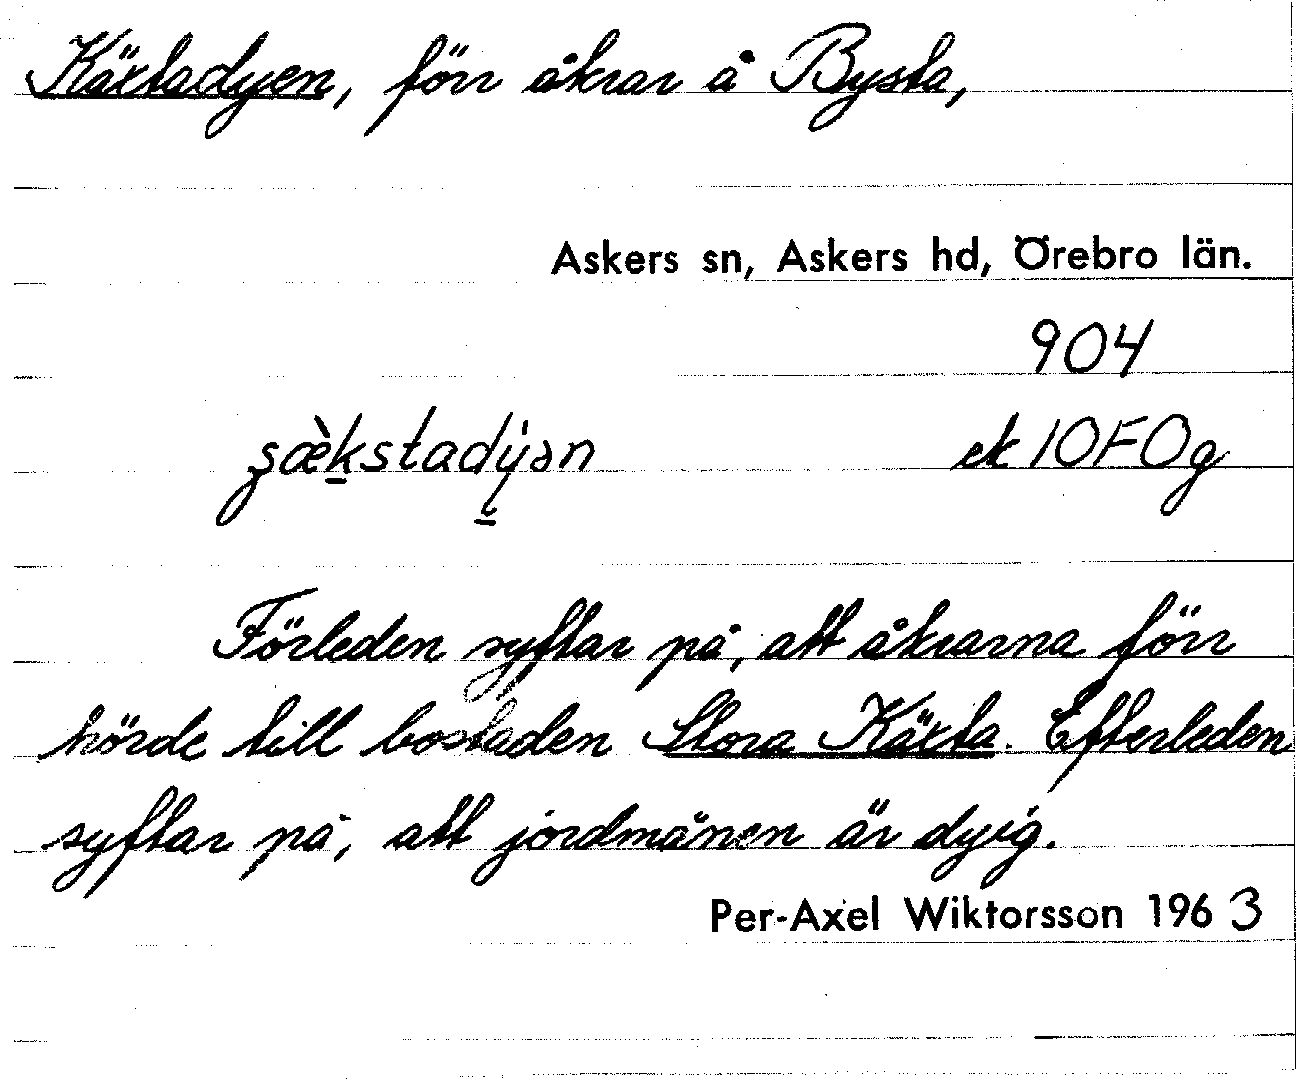 Käxtadyen, förr åkrar å Bysta,
Askers sn, Askers hd, Örebro län.
904
ek 10F0g
Förleden syftar på, att åkrarna förr
hörde till bostaden Stora Käxta. Efterleden
syftar på, att jordmånen är dyig.
Per-Axel Wiktorsson 1963